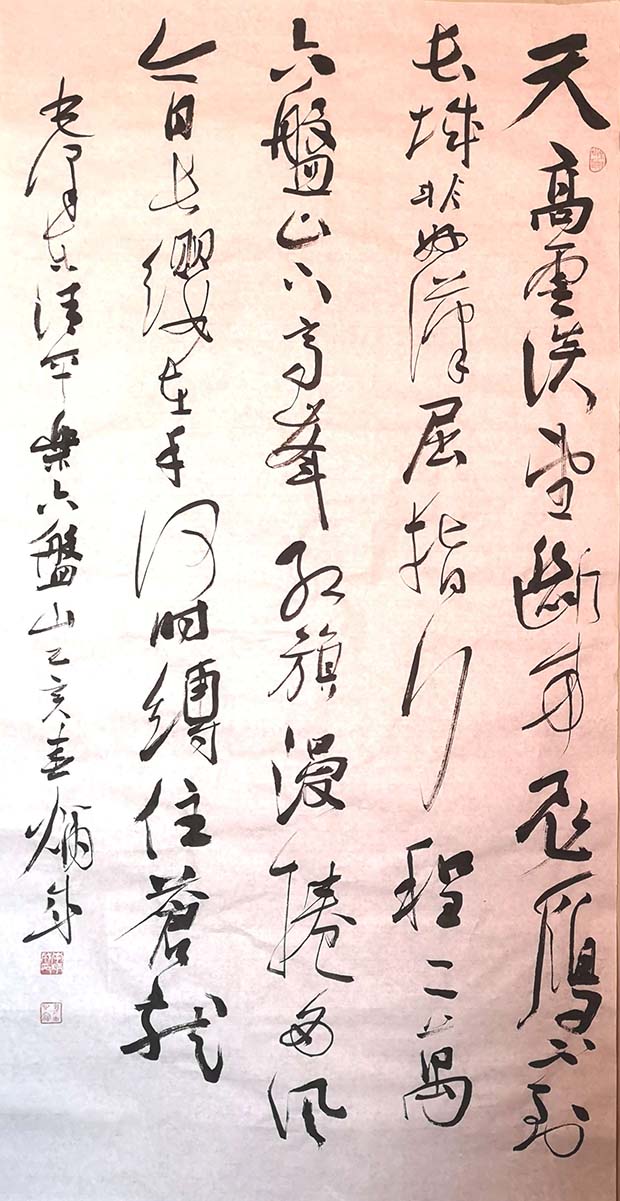 天高雲淡望斷南飛雁不到
長城非好漢屈指行程二萬
六盤山上高峯紅旗漫捲西風
今日長纓在手何時縛住蒼龍
毛澤東清平樂六盤山己亥春炳